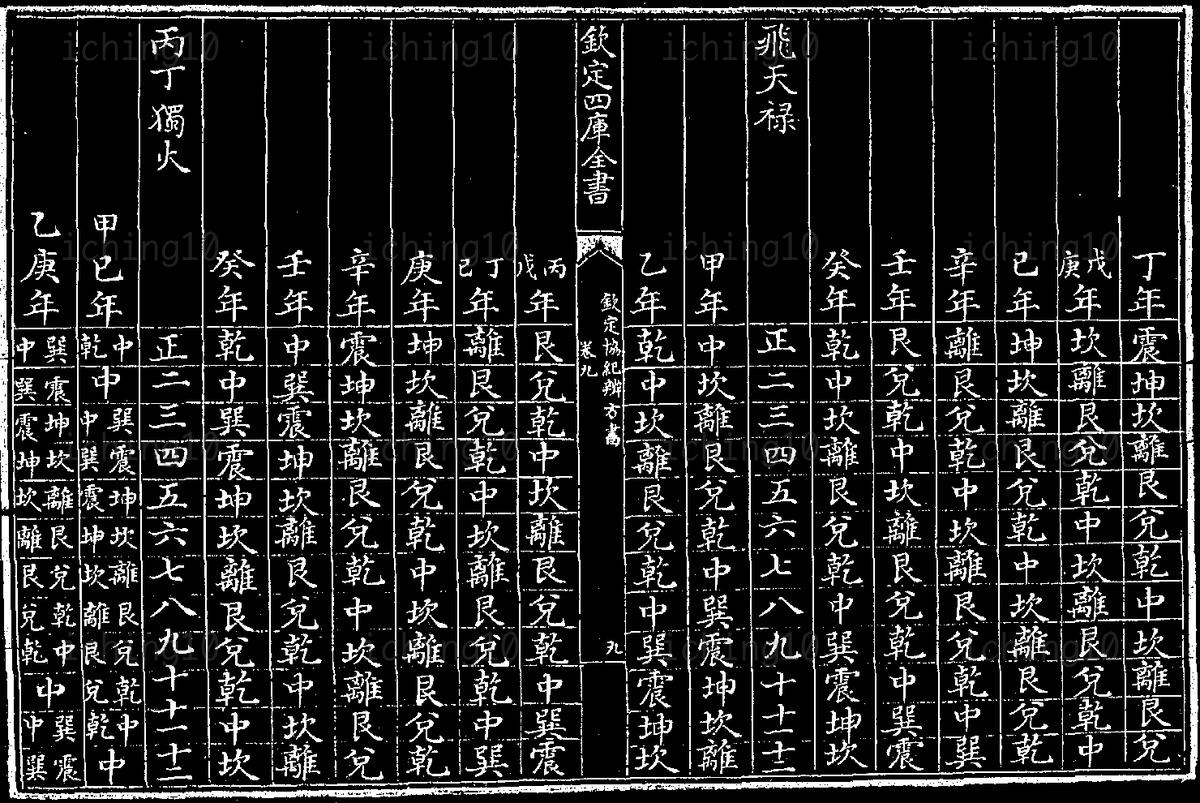 丁年震坤坎離艮兌乾中坎離艮兌
戊庚年坎離艮兌乾中坎離艮兌乾中
己年坤坎離艮兌乾中坎離艮兌乾
辛年離艮兌乾中坎離艮兌乾中巽
壬年艮兌乾中坎離艮兌乾中巽震
癸年乾中坎離艮兌乾中巽震坤坎
飛天祿正二三四五六七八九十十一十二
甲年中坎離艮兌乾中巽震坤坎離
乙年乾中坎離艮兌乾中巽震坤坎
欽定四庫全書
欽定協紀辨方書
卷九
九
丙戊年艮兌乾中坎離艮兌乾中巽震
丁己年離艮兌乾中坎離艮兌乾中巽
庚年坤坎離艮兌乾中坎離艮兌乾
辛年震坤坎離艮兌乾中坎離艮兌
壬年中巽震坤坎離艮兌乾中坎離
癸年乾中巽震坤坎離艮兌乾中坎
丙丁獨火正二三四五六七八九十十一十二
甲己年中乾中巽中震巽坤震坎坤離坎艮離兌艮乾兌中乾中
乙庚年巽中震巽坤震坎坤離坎艮離兌艮乾兌中乾中巽中震巽
iching10 iching10 iching10 iching10
iching10 iching10 iching10 iching10
iching10 iching10 iching10 iching10
iching10 iching10 iching10 iching10